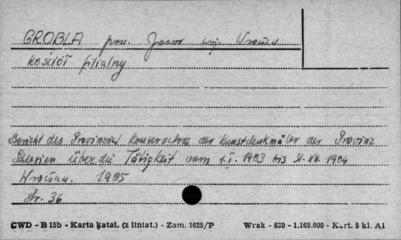 GROBLA pow. Jawor woj. Wrocław
kościół filialny
Bericht des Provinzial Konservators der Kunstdenkmäler der Provinz
Schlesien über die Tätigkeit vom 1.I. 1903 bis 31.XII. 1904
Wrocław. 1905
Str. 36
CWD - B 15b - Karta katal. (z liniat.) - Zam. 1625/P Wrak - 830 - 1.169.000 - Kart. 5 kl. A1